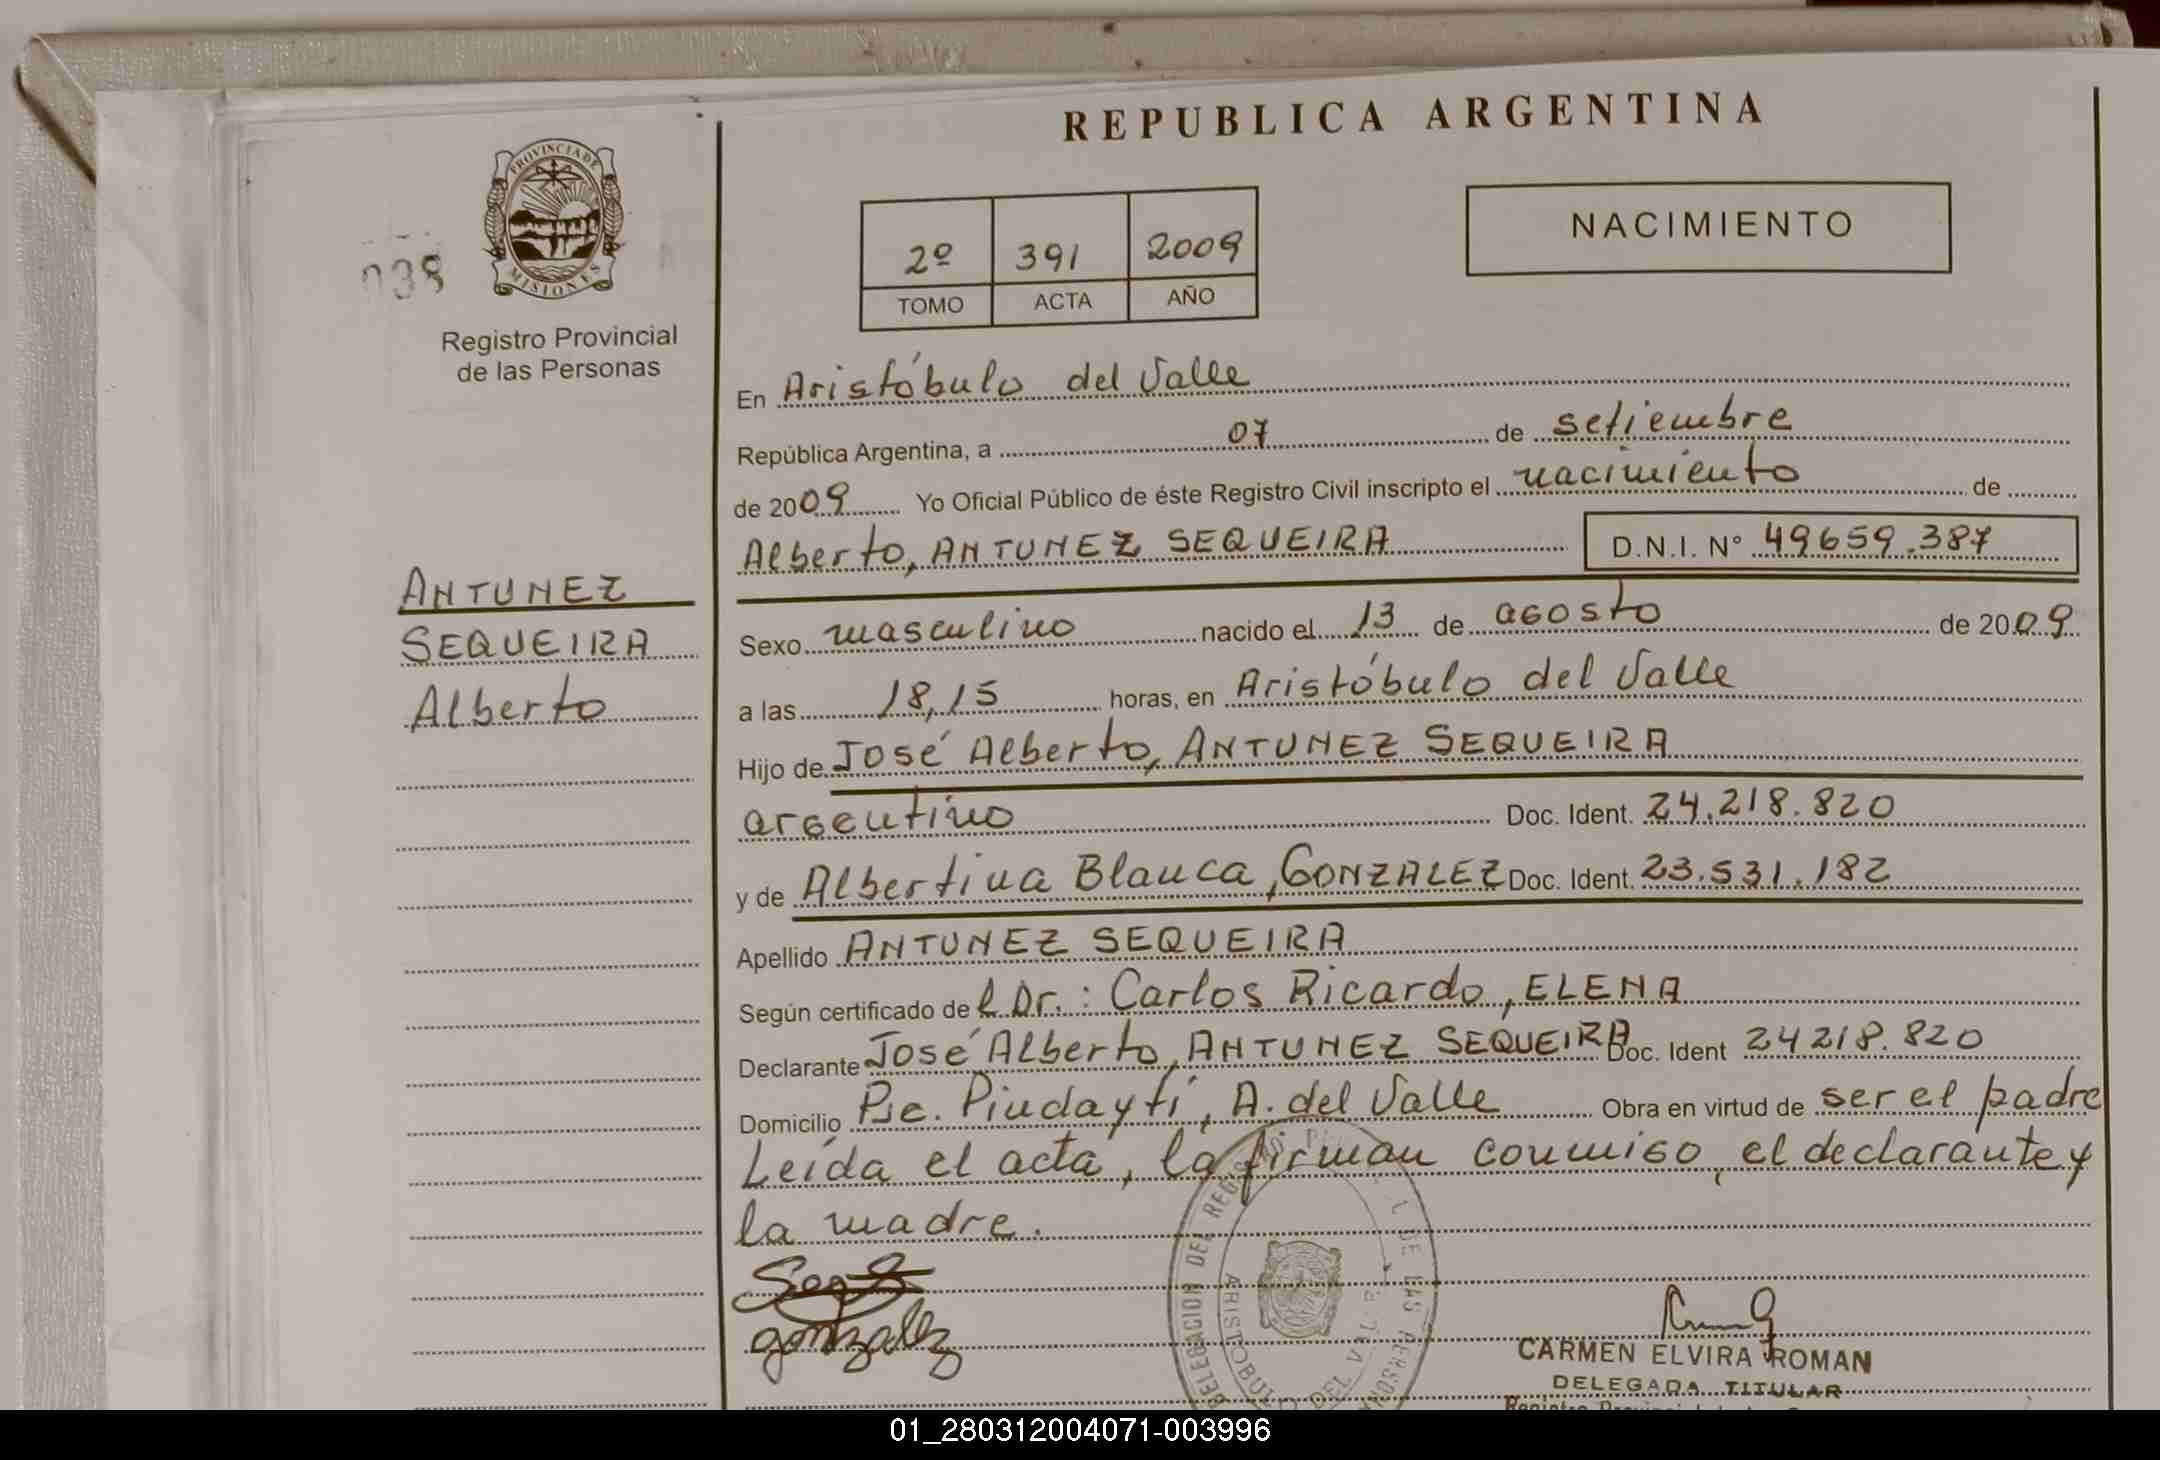 REPUBLICA ARGENTINA
PROVINCIA DE
MISIONES
038
Registro Provincial
de las Personas
2º 391 2009
TOMO ACTA AÑO
NACIMIENTO
En Aristóbulo del Valle
República Argentina, a 07 de setiembre
de 2009 Yo Oficial Público de éste Registro Civil inscripto el nacimiento de
Alberto, ANTUNEZ SEQUEIRA D.N.I. N° 49659.387
ANTUNEZ
SEQUEIRA
Alberto
Sexo masculino nacido el 13 de agosto de 2009
a las 18,15 horas, en Aristóbulo del Valle
Hijo de José Alberto, ANTUNEZ SEQUEIRA
argentino Doc. Ident. 24.218.820
y de Albertina Blanca, GONZALEZ Doc. Ident. 23.531.182
Apellido ANTUNEZ SEQUEIRA
Según certificado de l Dr.: Carlos Ricardo, ELENA
Declarante José Alberto, ANTUNEZ SEQUEIRA Doc. Ident 24218.820
Domicilio Pje. Pindaytí, A. del Valle Obra en virtud de ser el padre
Leída el acta, la firman conmigo, el declarante y
la madre.
gonzalez
DELEGACION DEL REGISTRO DE LAS PERSON
ARISTOBUL DEL VALLE
CARMEN ELVIRA ROMAN
DELEGADA TITULAR
01_280312004071-003996